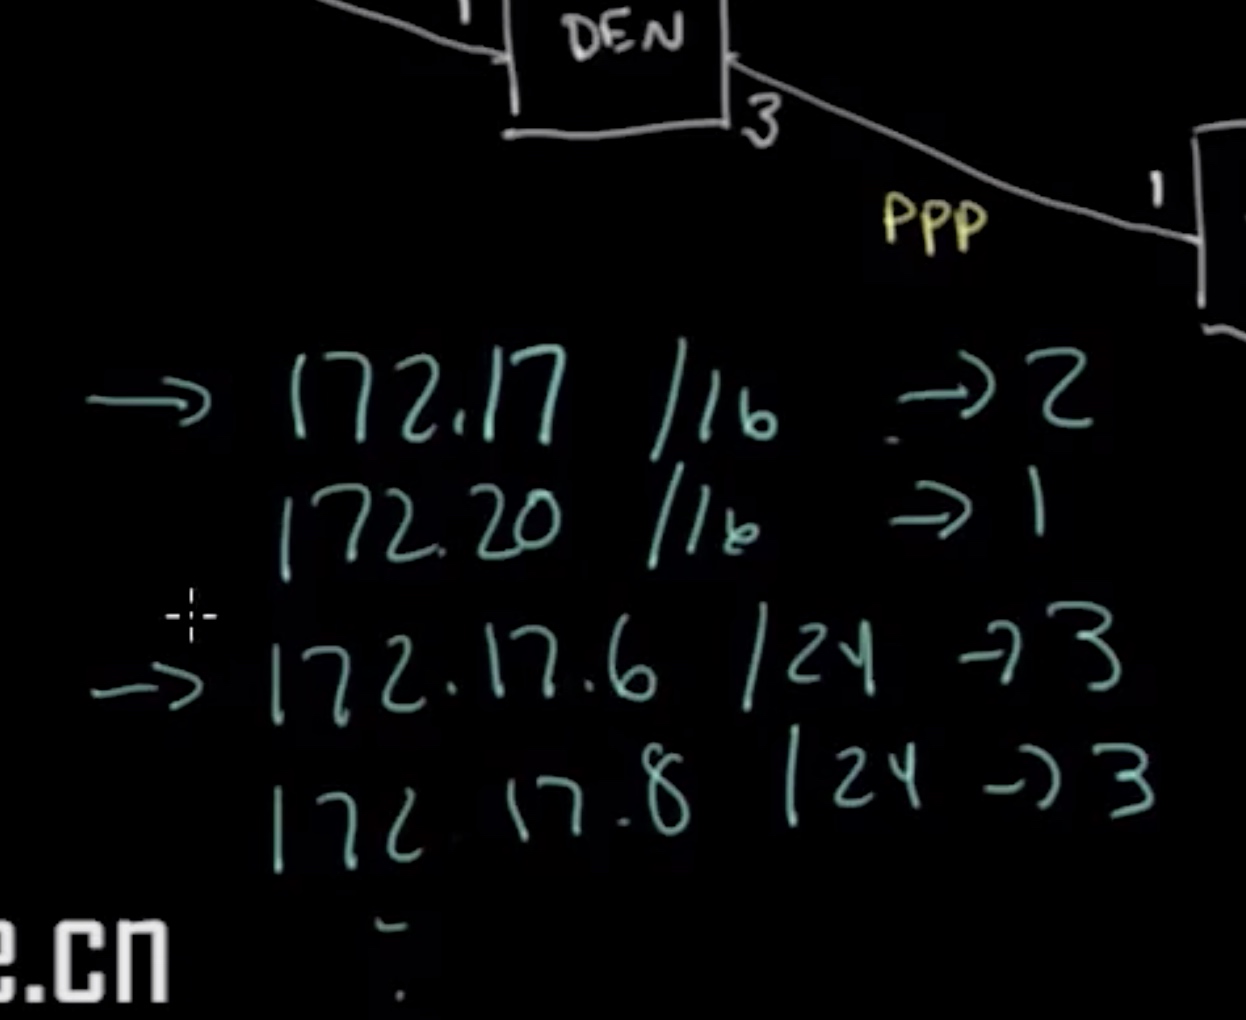 1
DEN
3
1
PPP
→ 172.17 /16 → 2
172.20 /16 → 1
→ 172.17.6 /24 → 3
172 17.8 /24 → 3
e.cn